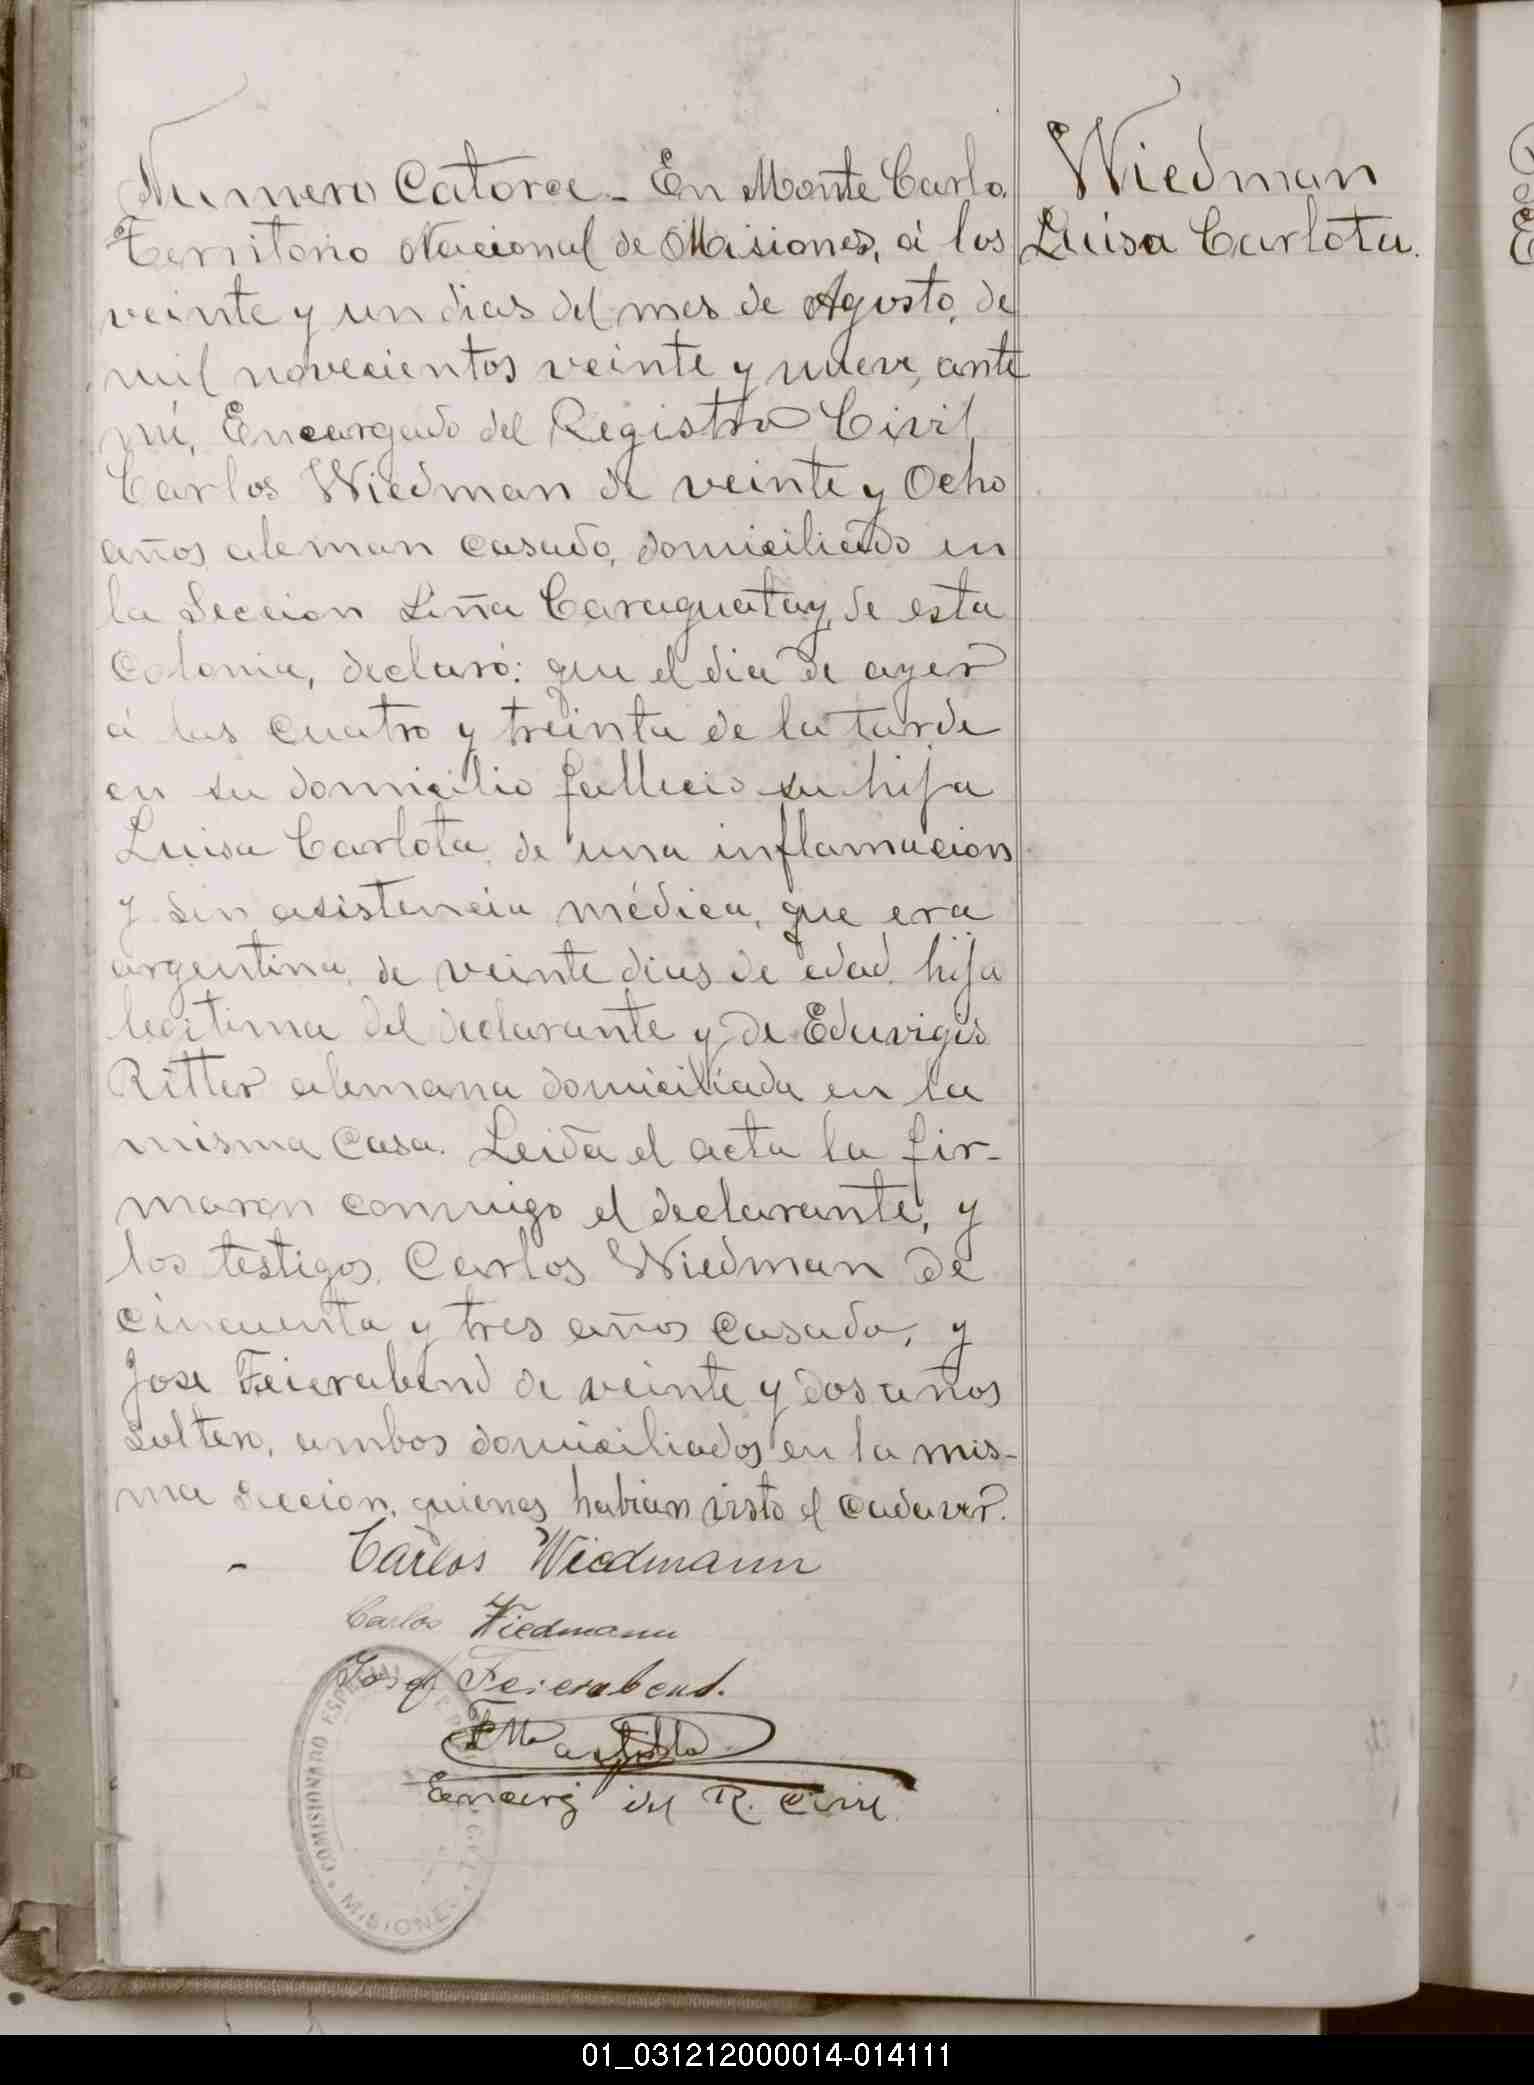 Numero Catorce - En Monte Carlo.
Territorio Nacional de Misiones, á los
veinte y un dias del mes de Agosto, de
mil novecientos veinte y nueve, ante
mi, Encargado del Registro Civil
Carlos Wiedman de veinte y Ocho
años aleman casado, domiciliado en
la Seccion Liña Caraguatay, de esta
Colonia, declaró: que el dia de ayer
á las cuatro y treinta de la tarde
en su domicilio fallecio su hija
Luisa Carlota, de una inflamacion
y sin asistencia médica, que era
argentina, de veinte dias de edad, hija
legitima del declarante y de Eduvigis
Ritter alemana domiciliada en la
misma casa. Leida el acta la fir-
maron conmigo el declarante, y
los testigos, Carlos Wiedman de
cincuenta y tres años casado, y
Jose Feierabend de veinte y dos años
soltero, ambos domiciliados en la mis-
ma seccion, quienes habian visto el cadaver.
Carlos Wiedmann
Carlos Wiedmann
Josef Feierabend.
Encarg del R. Civil
COMISIONADO ESPECIAL
MISIONES
Wiedman
Luisa Carlota.
01_031212000014-014111